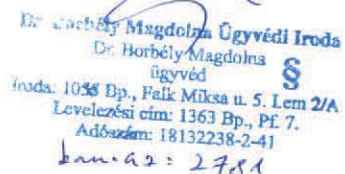 Dr. Borbély Magdolna Ügyvédi Iroda
Dr. Borbély Magdolna
ügyvéd §
Iroda: 1055 Bp., Falk Miksa u. 5. I.em 2/A
Levelezési cím: 1363 Bp., Pf. 7.
Adószám: 18132238-2-41